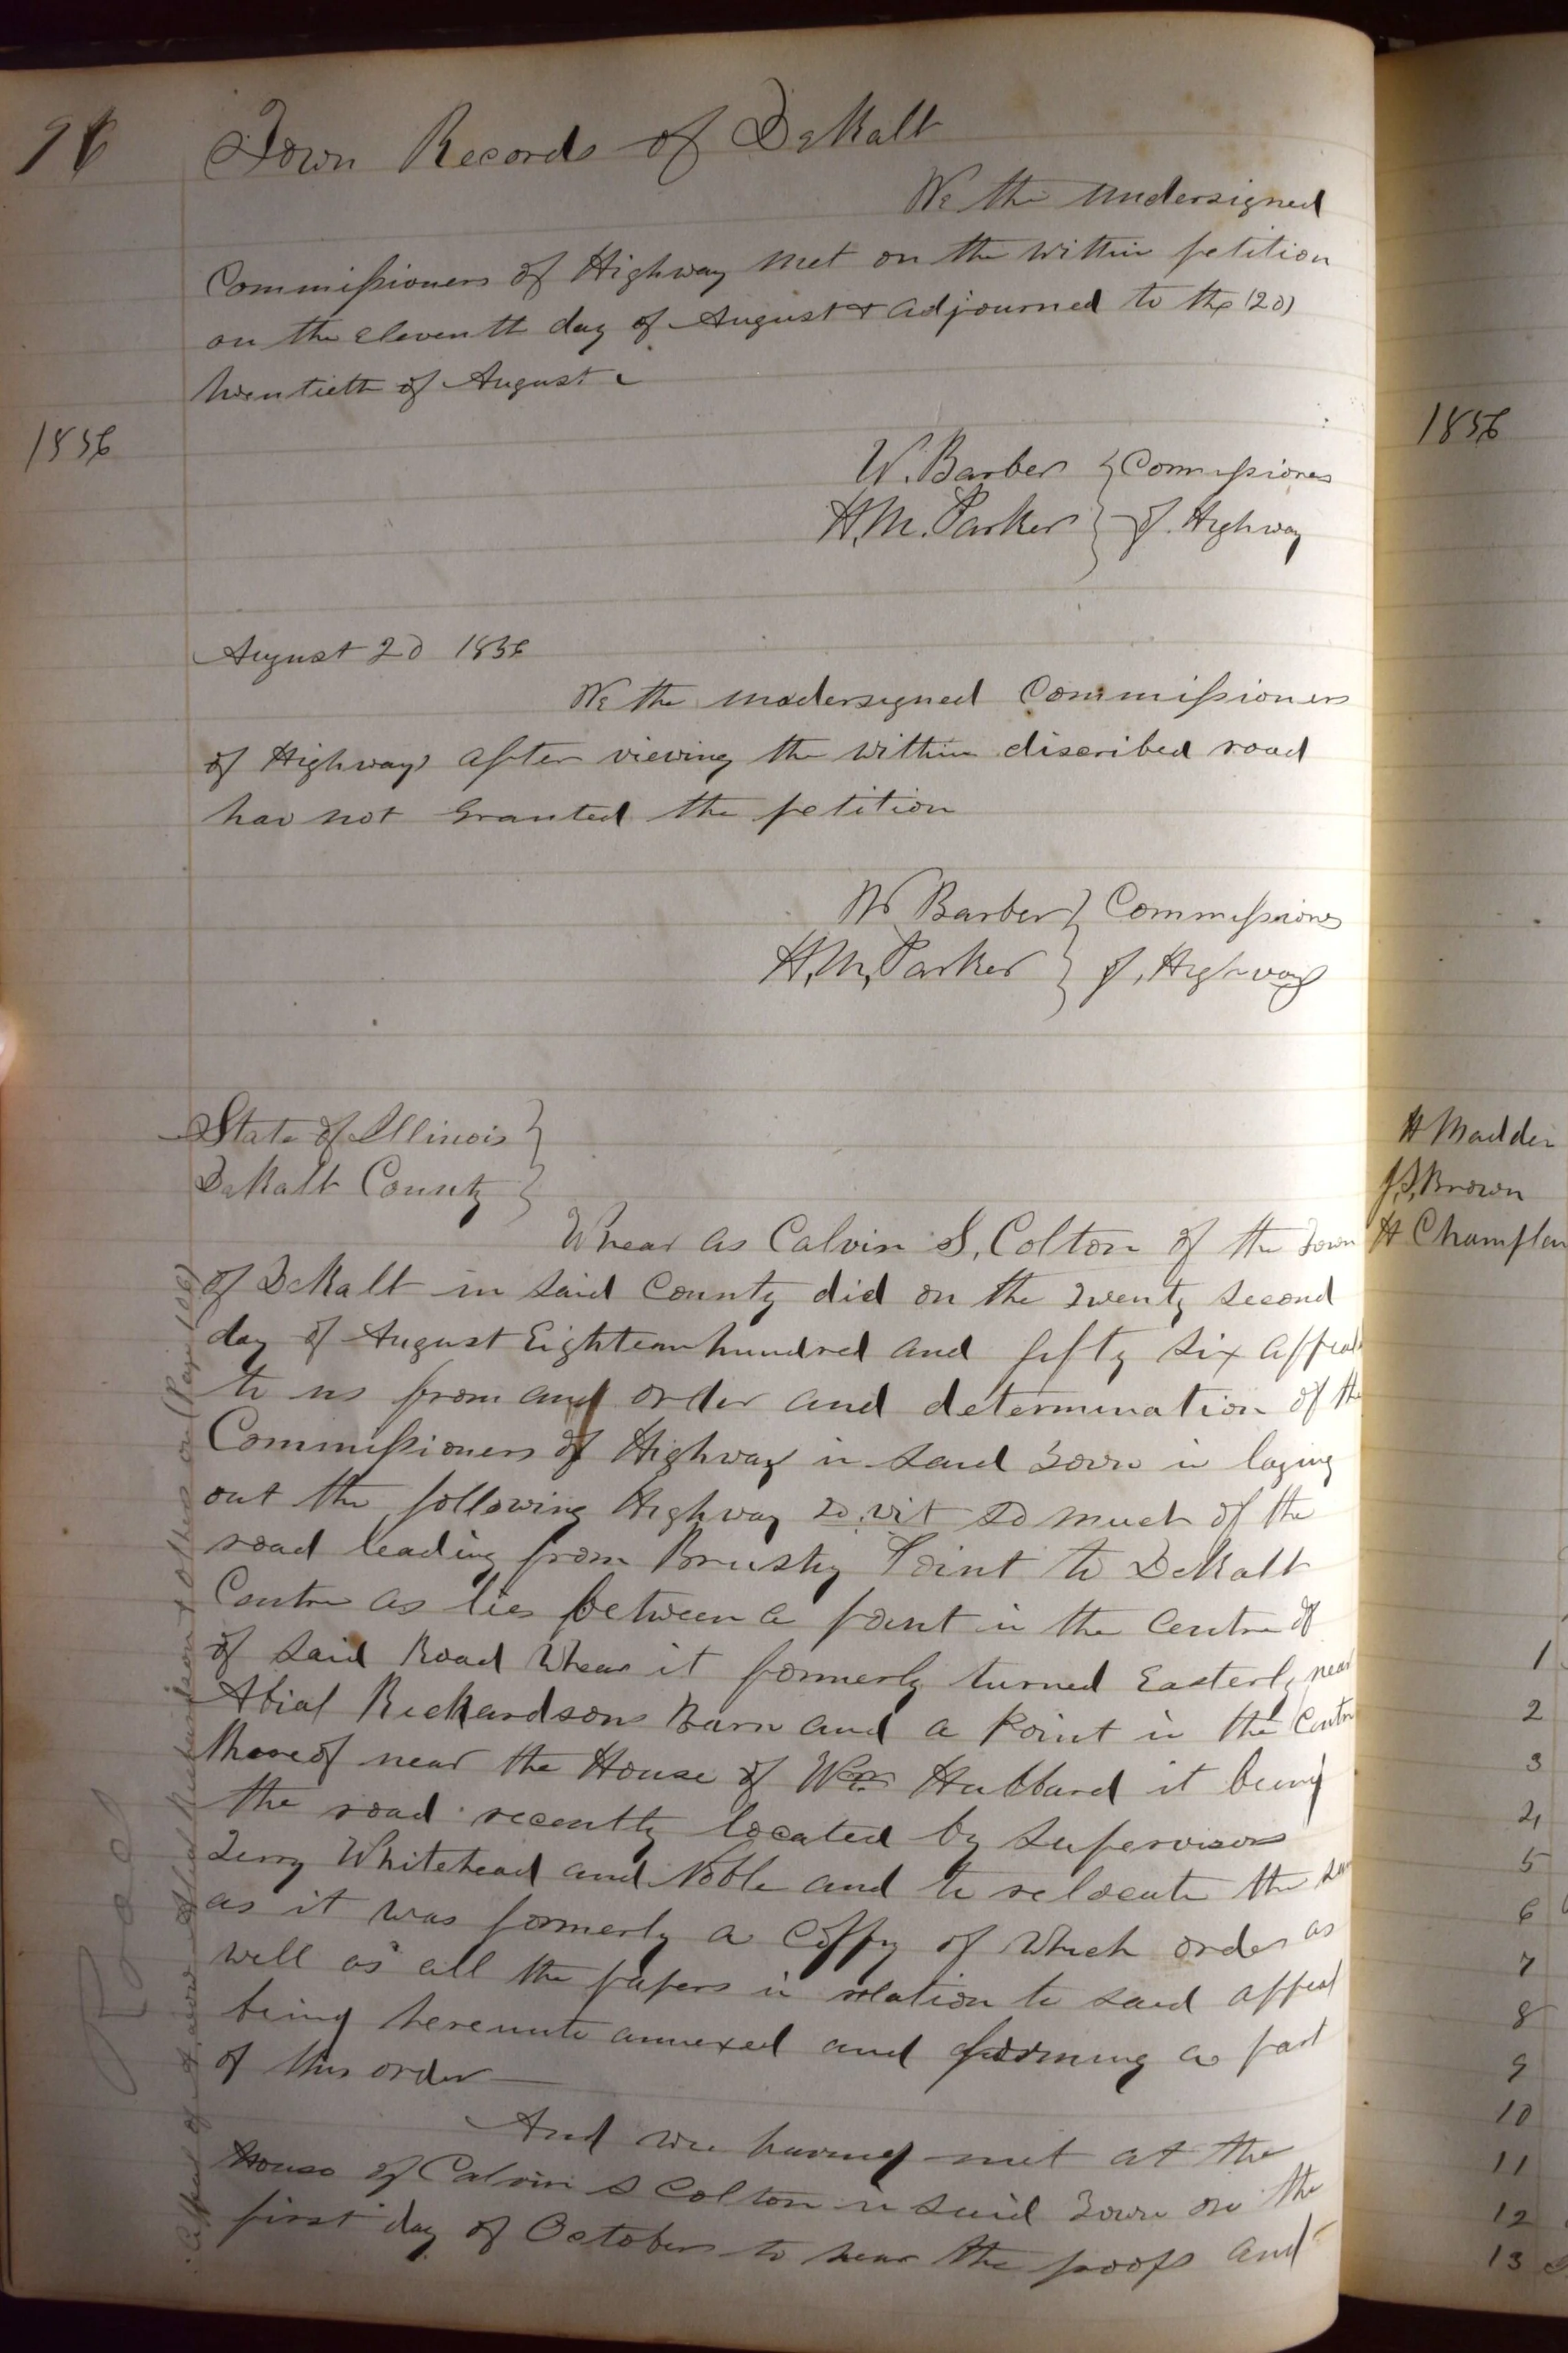 96
Town Records of DeKalb
We the undersigned
Commissioners of Highway met on the within petition
on the eleventh day of August & adjourned to the (20)
twentieth of August
1856
W. Barber } Commissioners
H. M. Parker } of Highway
August 20 1856
We the undersigned Commissioners
of Highways after viewing the within discribed road
has not Granted the petition
W Barber } Commissioners
H. M. Parker } of Highways
State of Illinois }
DeKalb County }
Whear as Calvin S. Colton of the Town
of DeKalb in said County did on the twenty second
day of August Eighteen hundred and fifty six appeal
to us from and order and determination of the
Commissioners of Highway in said Town in laying
out the following Highway to.wit so much of the
road leading from Brushy Point to DeKalb
Centre as lies between a point in the Centre of
of said Road Whear it formerly turned Easterly near
Abial Richardsons Barn and a Point in the Centre
thereof near the House of Wm Hubbard it being
the road recently located by Supervisors
Terry Whitehead and Noble and to relocate the same
as it was formerly a Coppy of Which order as
well as all the papers in relation to said appeal
being hereunto annexed and forming a part
of this order
And we having met at the
House of Calvin S Colton in said Town on the
first day of October to hear the proofs and
Appeal of Abial Richardson & others on (Page 106)
Road
1856
H Madden
J. S. Brown
H Champlin
1
2
3
4
5
6
7
8
9
10
11
12
13